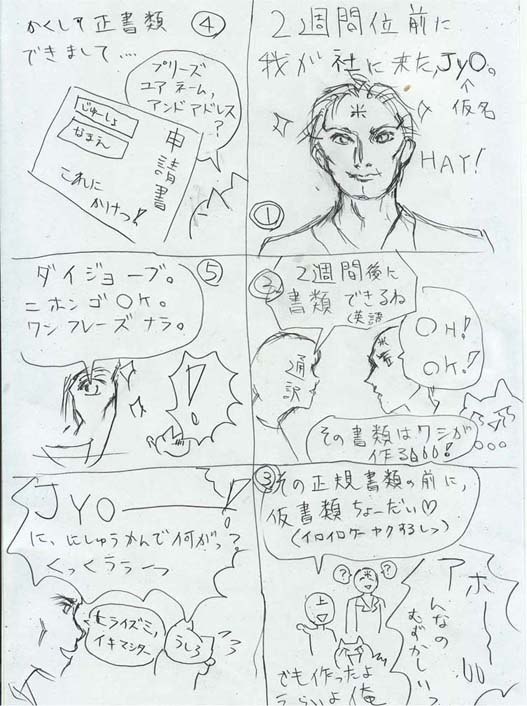 2週間位前に
我が社に来た,JyO。
↑
仮名
米
HAY!
①
②
2週間後に
書類できるね
(英語
通訳
米
OH!
OK!
その書類はワシが
作る
③
その正規書類の前に,
仮書類ちょーだい♡
(イロイロケーヤクするしっ)
?
?
上
米
アホー
んなの
むずかしいっ
でも作ったよ
えらいよ俺
④
かくして正書類
できまして....
プリーズ
ユアネーム,
アンドアドレス
?
じゅーしょ
なまえ
申請書
これに
かけっ!
⑤
ダイジョーブ。
ニホンゴOK。
ワンフレーズナラ。
!
JYO――!
に、にしゅうかんで何がっ?
くっくララーっ
ヒライズミ,
イキマシター
うしろ